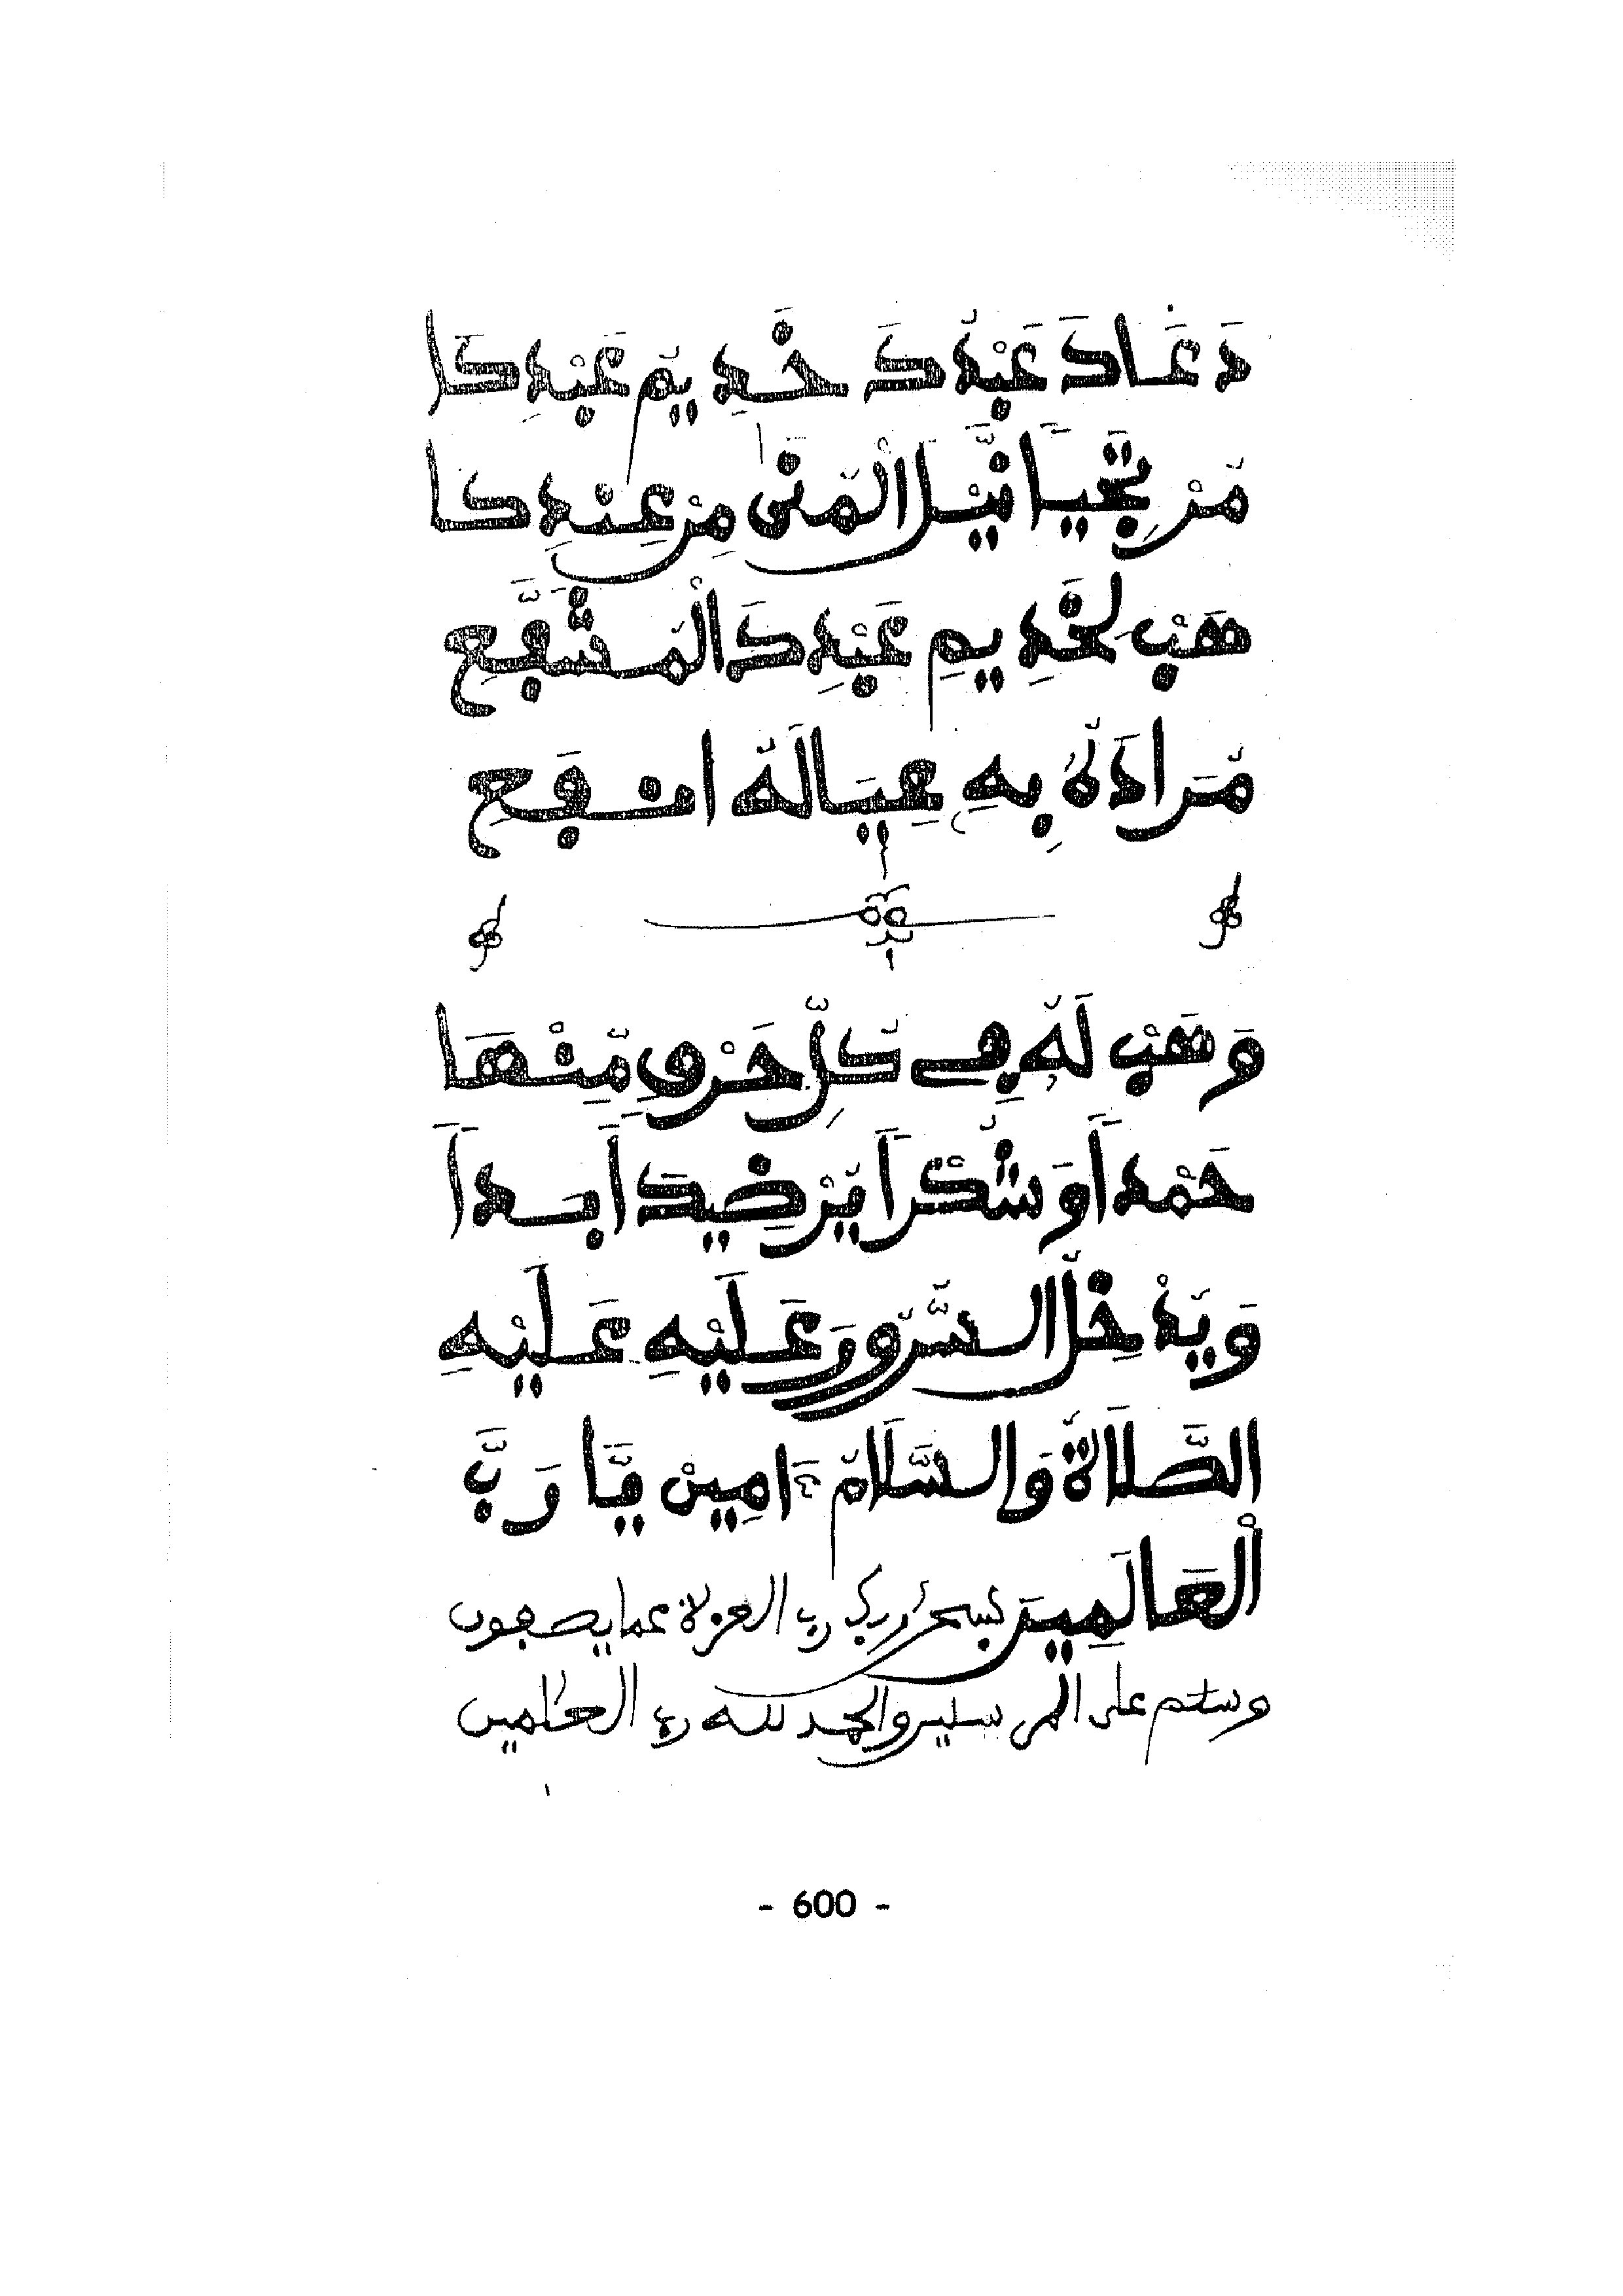 دَعَاكَ عَبْدُكَ خَدِيمُ عَبْدِكَا
مُرْتَجِيًا نَيْلَ الْمُنَى مِنْ عِنْدِكَا
هَبْ لِخَدِيمِ عَبْدِكَ الْمُشَفَّعِ
مُرَادَهُ بِهِ عِيَالَهُ انْفَعِ
وَهَبْ لَهُ فِي كُلِّ حَرْفٍ مِّنْهَا
حَمْدًا وَشُكْرًا يُرْضِيكَ أَبَدًا
وَيُدْخِلُ السُّرُورَ عَلَيْهِ عَلَيْهِ
الصَّلَاةُ وَالسَّلَامُ ءَامِينْ يَا رَبَّ
الْعَالَمِينَ سبحن ربك رب العزة عما يصفون
وسلم على المرسلين والحمد لله رب العلمين
- 600 -